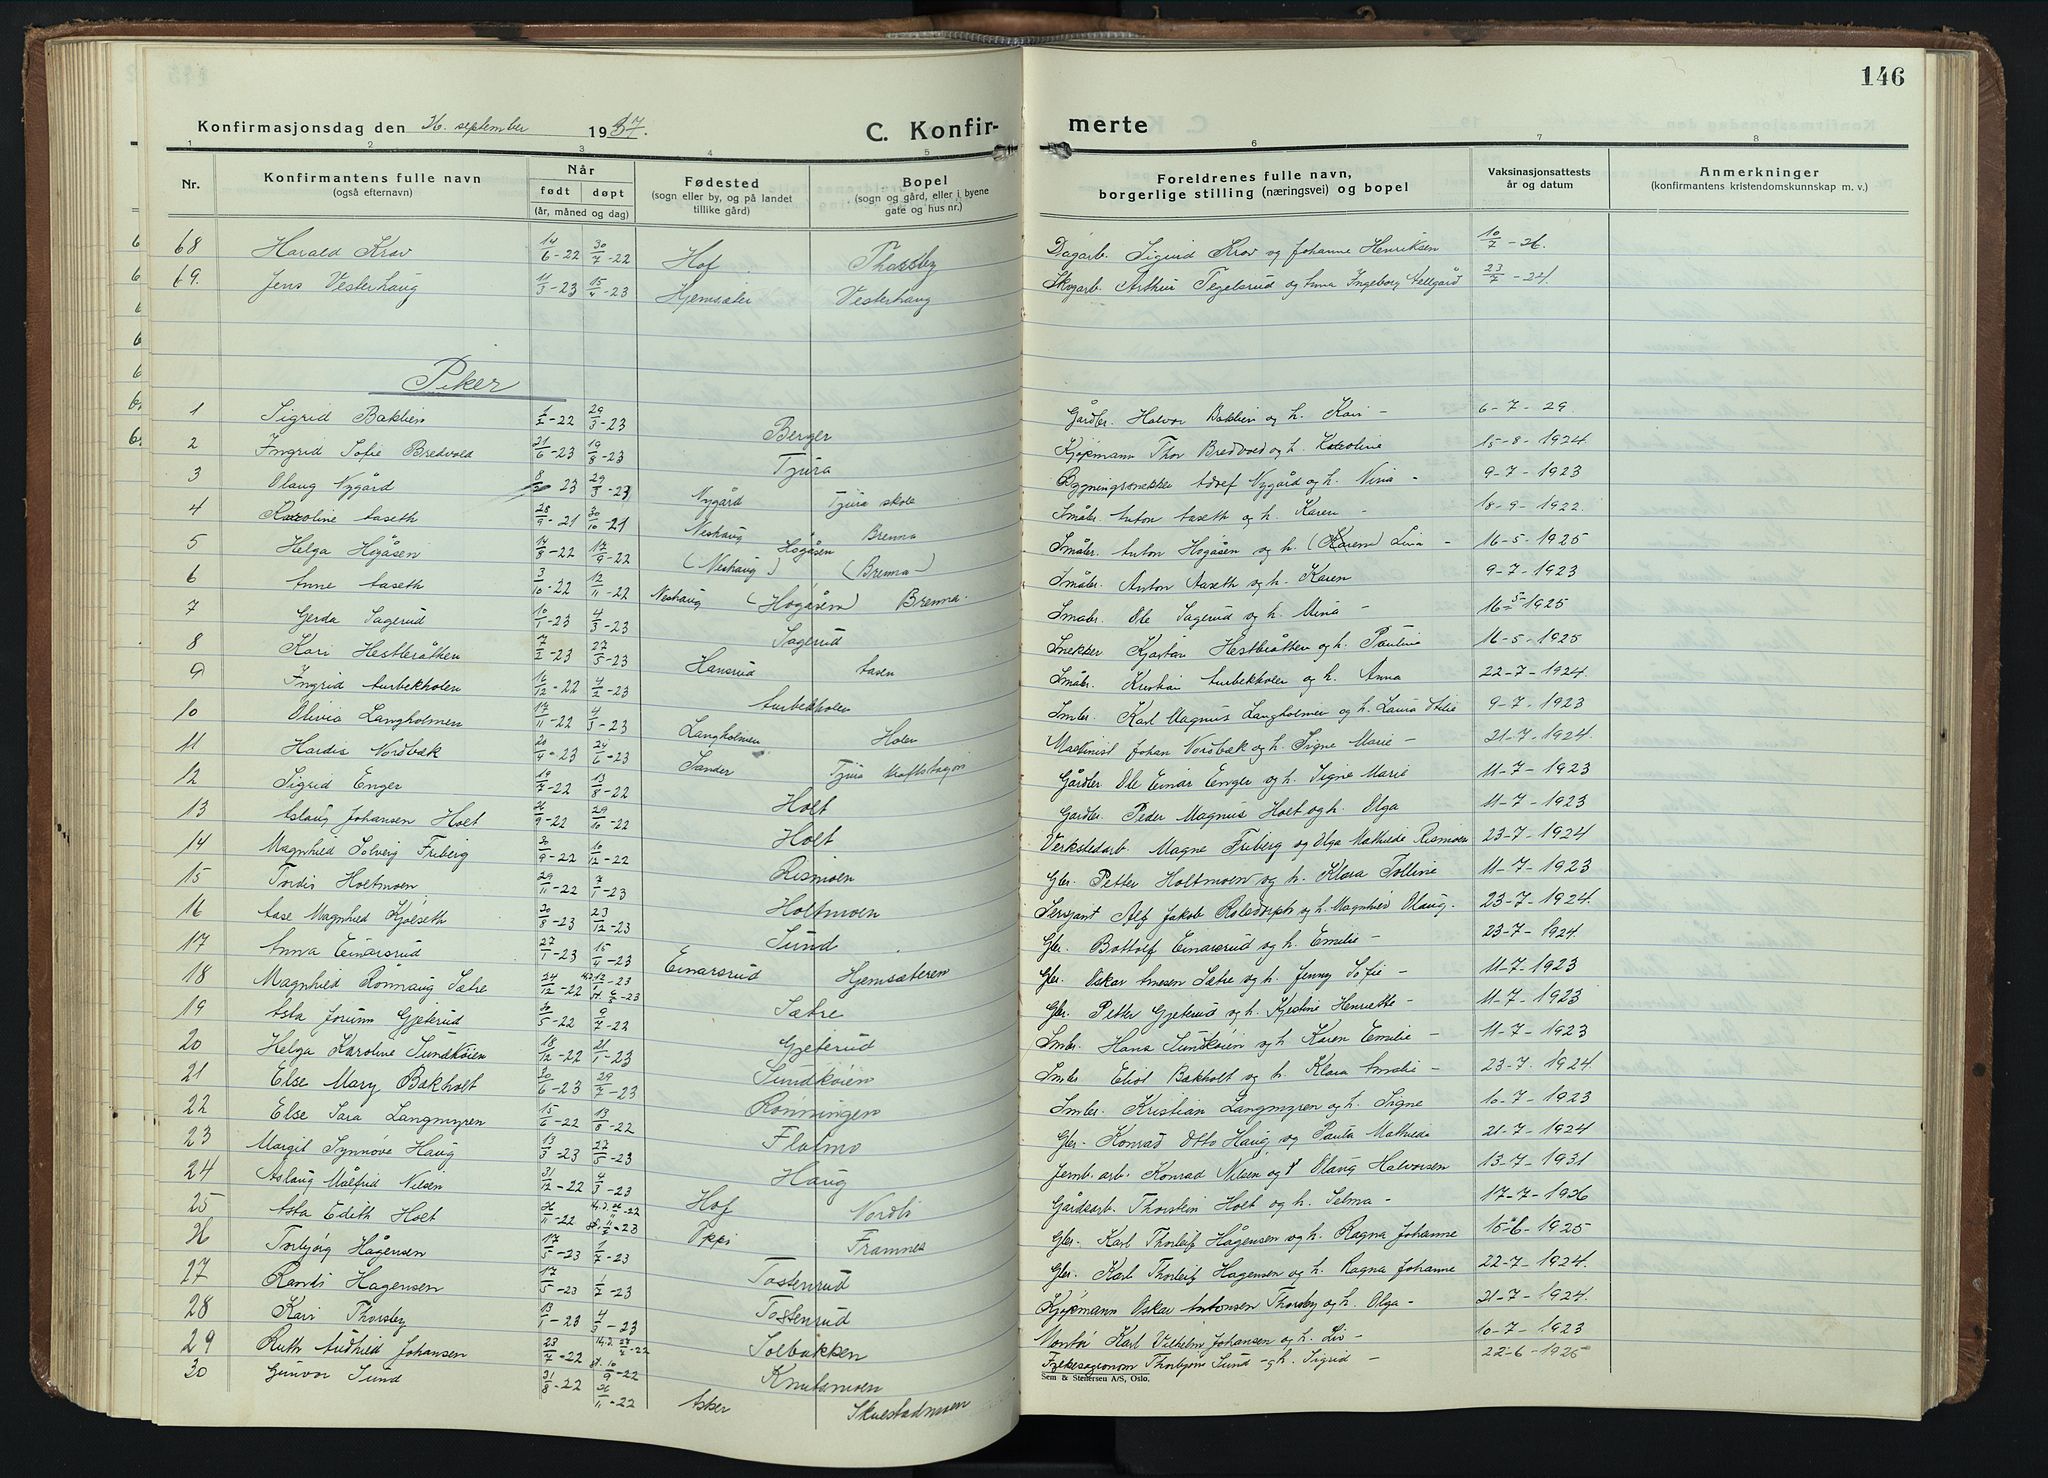 146
Konfirmasjonsdag den 26. september 1937.
C. Konfir-
merte
1 2 3 4 5 6 7 8
Nr.
Konfirmantens fulle navn
(også efternavn)
Når
født døpt
(år, måned og dag)
Fødested
(sogn eller by, og på landet
tillike gård)
Bopel
(sogn og gård, eller i byene
gate og hus nr.)
Foreldrenes fulle navn,
borgerlige stilling (næringsvei) og bopel
Vaksinasjonsattests
år og datum
Anmerkninger
(konfirmantens kristendomskunnskap m. v.)
68 Harald Krav 14/6-22 30/7-22 Hof Thorsby Dagarb. Sigurd Krav og Johanne Henriksen 10/7-26.
69. Jens Vesterhaug 11/3-23 15/4-23 Hjemsæter Vesterhaug Skogarb. Arthur Tegelsrud og Anna Ingeborg 23/7-24.
Piker
1 Sigrid Bakken 29/3-23 Berger Gårdbr. Halvor Bakken og h. Kari - 6-7-29.
2 Ingrid Sofie Bredvold 21/6-23 19/8-23 Tjura Kjøpmann Thor Bredvold og h. Karoline 15-8-1924.
3 Olaug Nygård 23 29/3-23 Nygård Tjura skole Bygningssnekker Adolf Nygård og h. Nina - 9-7-1923
4 Karoline Aaseth 28/9-21 30/10-21 Neshaug Brenna Småbr. Anton Aaseth og h. Karen - 18-9-1922.
5 Helga Høgåsen 14/8-22 17/9-22 (Neshaug) Høgåsen (Brenna) Småbr. Anton Høgåsen og h. (Karen) Lina - 16-5-1925
6 Anne Aaseth 3/10-22 12/11-22 Neshaug (Høgåsen) Brenna. Småbr. Anton Aaseth og h. Karen 9-7-1923
7 Gerda Sagerud 10/1-23 4/3-23 Sagerud Småbr. Ole Sagerud og h. Mina - 16-5-1925
8 Kari Hestbråthen 7/2-23 27/5-23 Hansrud Aasen Snekker Kjartan Hestbråthen og h. Pauline 16-5-1925
9 Ingrid Aurbekholen 16/12-22 4/2-23 Aurbekholen Småbr. Kristian Aurbekholen og h. Anna 22-7-1924
10 Olivia Langholmen 17/11-22 4/3-23 Langholmen Holen Smbr. Karl Magnus Langholmen og h. Laura 9-7-1923
11 Hardis Nordbæk 20/4-23 24/6-23 Sander Tjura kraftstasjon Maskinist Johan Nordbæk og h. Signe Marie - 21-7-1924
12 Sigrid Enger 19/7-22 13/8-22 Holt Gårdbr Ole Einar Enger og h. Signe Marie 11-7-1923
13 Aslaug Johansen Holt 21/9-22 29/10-22 Holt Gårdbr. Peder Magnus Holt og h. Olga 11-7-1923
14 Magnhild Solveig Friberg 30/9-22 10/12-22 Rismoen Verkstedarb. Magne Friberg og Olga Mathilde Rismoen 23-7-1924
15 Tordis Holtmoen 29/11-22 7/1-23 Holtmoen Gbr. Petter Holtmoen og h. Klara Talline 11-7-1923
16 Aase Magnhild Kjølseth 30/8-23 23/12-23 Sund Sersjant Alf Jakob Rolsdorph og h. Magnhild Olaug. 23-7-1924.
17 Anna Einarsrud 27/1-23 15/4-23 Einarsrud Hjemsæteren Gbr. Bottolf Einarsrud og h. Emilie - 23-7-1924.
18 Magnhild Rønnaug Sætre 24/12-22 Sætre Gbr. Oskar Amesen Sætre og h. Jenny Sofie - 11-7-1923
19 Asta Jorunn Gjeterud 30/5-22 9/7-22 Gjeterud Gbr. Petter Gjeterud og h. Kjestine Henriette - 11-7-1923
20 Helga Karoline Sundkøien 18/12-22 21/1-23 Sundkøien Smbr. Hans Sundkøien og h. Karen Emilie - 11-7-1923
21 Else Mary Bækholt 30/6-23 29/7-23 Rønningen Smbr. Eliot Bækholt og h. Klara Amalie - 23-7-1924.
22 Else Sara Langmyren 15/6-22 13/8-22 Flatmo Smbr. Kristian Langmyren og h. Signe 10-7-1923
23 Margit Synnøve Haug 13/3-23 27/5-23 Haug Gbr. Konrad Otto Haug og Paula Mathilde 21-7-1924
24 Aslaug Målfrid Nilsen 31/12-22 4/3-23 Hof Nordli Jernb. arb. Konrad Nilsen og Olaug Halvorsen 13-7-1931
25 Asta Edith Holt 26/11-22 Oppi Framnes Gårdsarb. Thorstein Holt og h. Selma - 17-7-1926
26 Torbjørg Hågensen 17/5-23 1/7-23 Tostenrud Gbr. Karl Thorleif Hågensen og h. Ragna Johanne 15-6-1925
27 Randi Hagensen 17/5-23 1/7-23 Tostenrud Gbr. Karl Thorleif Hagensen og h. Ragna Johanne 22-7-1924.
28 Kari Thorsby 13/1-23 4/3-23 Solbakken Kjøpmann Oskar Antonsen Thorsby og h. Olga - 21-7-1924.
29 Ruth Audhild Johansen 23/7-22 Knutsmoen Montør Karl Vilhelm Johansen og h. Liv - 10-7-1923
30 Gunvor Sund 21/8-22 26/11-22 Asker Skulstadmoen Fylkesagronom Thorbjørn Sund og h. Sigrid - 22-6-1925
Sem & Stenersen A/S, Oslo.